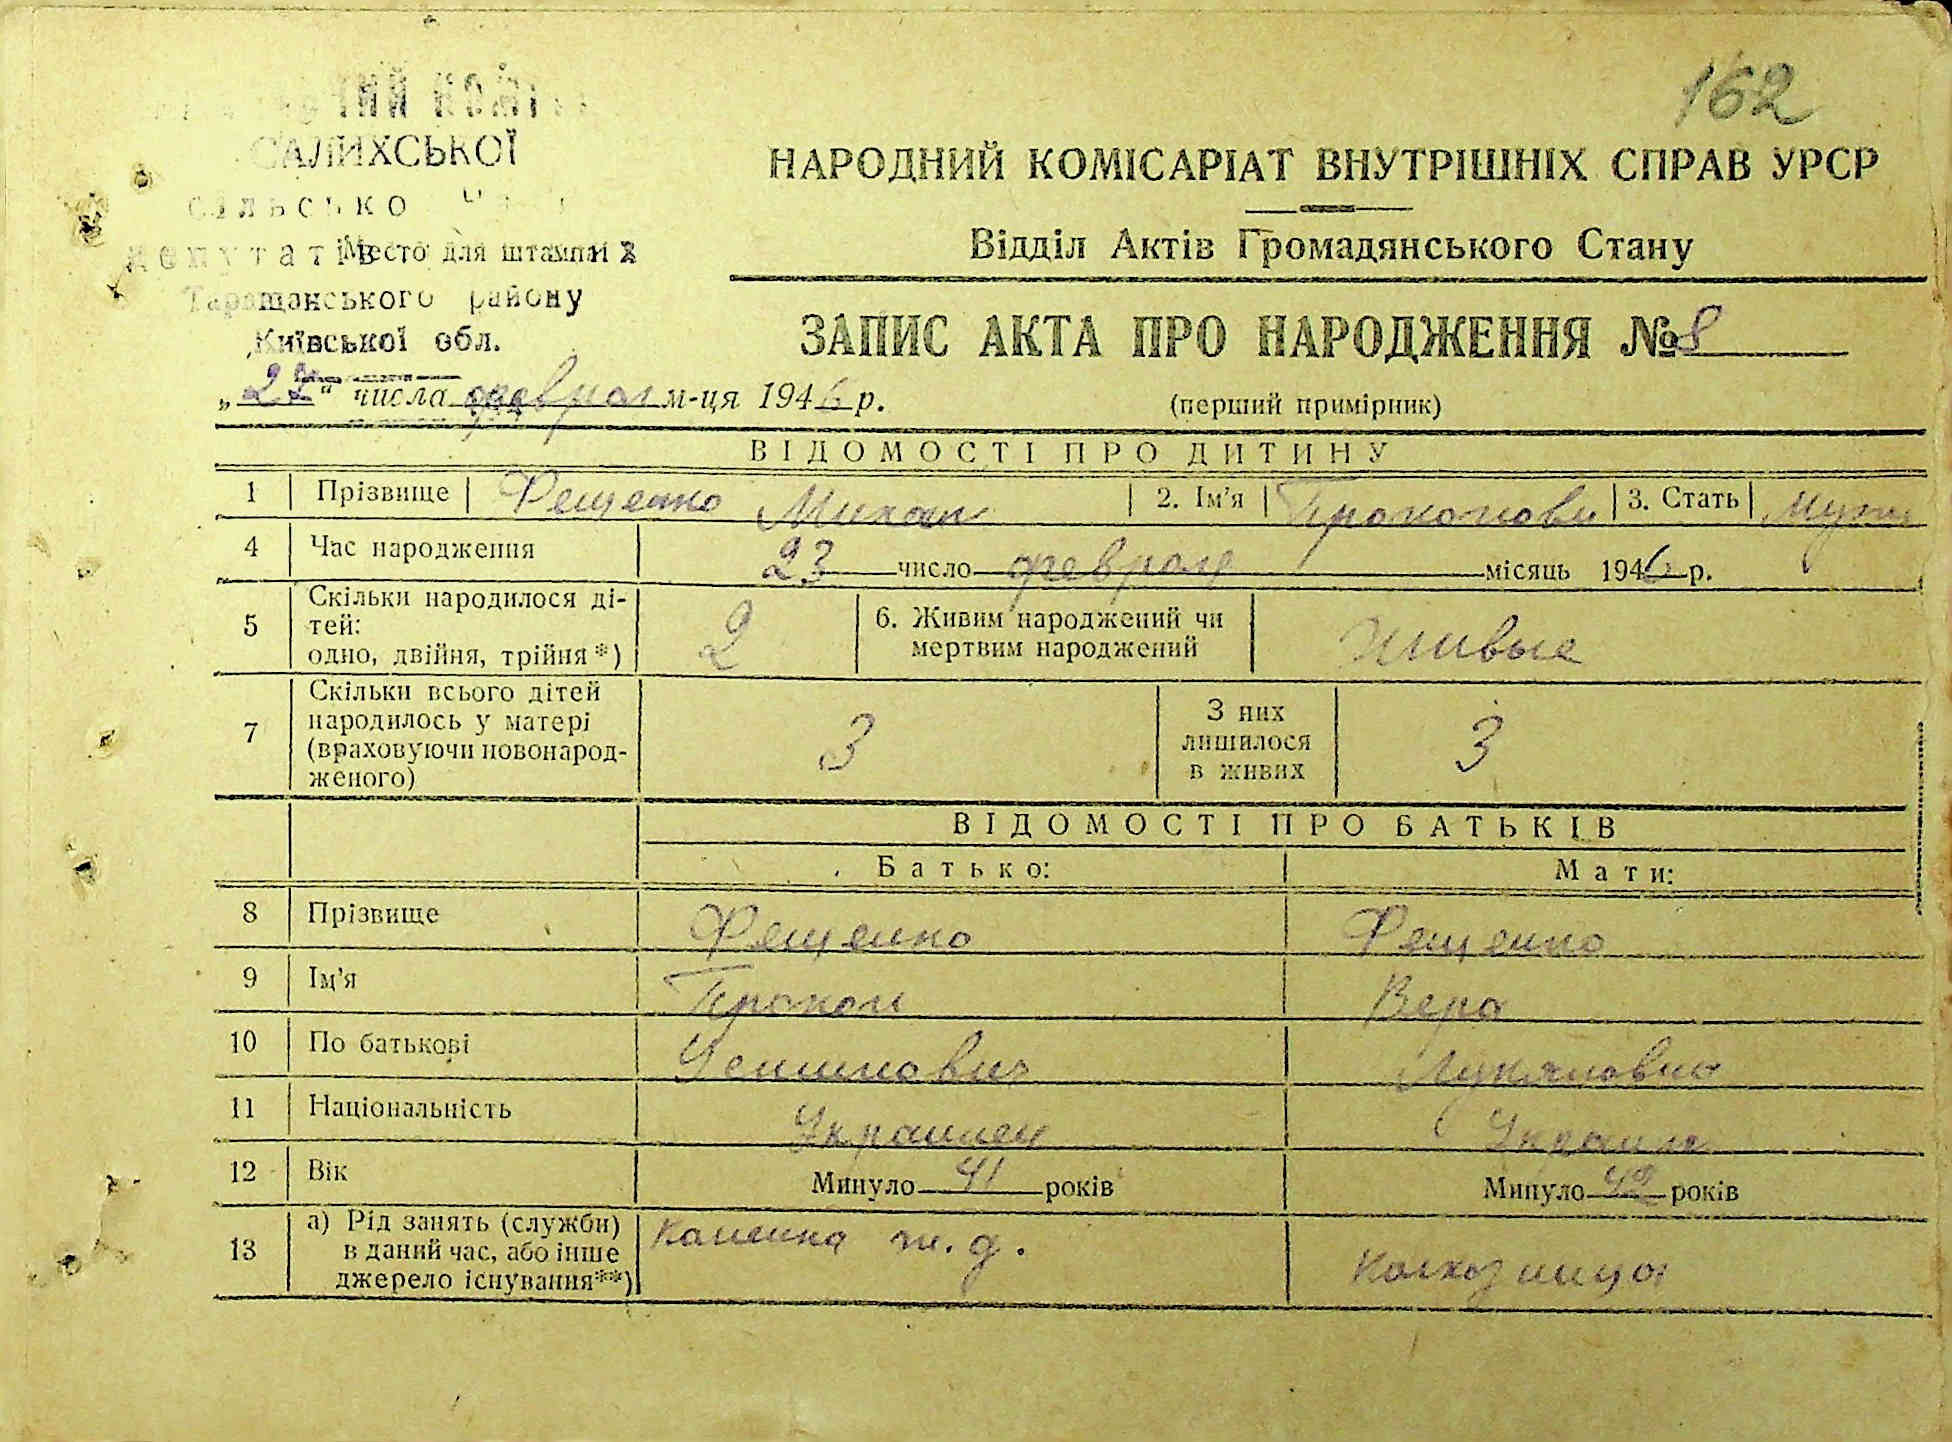 162
САЛИХСЬКОЇ
Место для штампа
Таращанського району
Київської обл.
НАРОДНИЙ КОМІСАРІАТ ВНУТРІШНІХ СПРАВ УРСР
Відділ Актів Громадянського Стану
ЗАПИС АКТА ПРО НАРОДЖЕННЯ № 8
„27" числа феврал м-ця 1946 р.
(перший примірник)
ВІДОМОСТІ ПРО ДИТИНУ
1 Прізвище Фещенко Михаил 2. Ім'я Прокопови 3. Стать Муж
4 Час народження 23 число февраля місяць 1946 р.
5 Скільки народилося дітей: одно, двійня, трійня *) 2 6. Живим народжений чи мертвим народжений Живые
7 Скільки всього дітей народилось у матері (враховуючи новонародженого) 3 З них лишилося в живих 3
ВІДОМОСТІ ПРО БАТЬКІВ
Батько: Мати:
8 Прізвище Фещенко Фещенко
9 Ім'я Прокоп Вера
10 По батькові Лукяновна
11 Національність Украинец Украин
12 Вік Минуло 41 років Минуло 42 років
13 а) Рід занять (служби) в даний час, або інше джерело існування**) ж. д. Колхозница